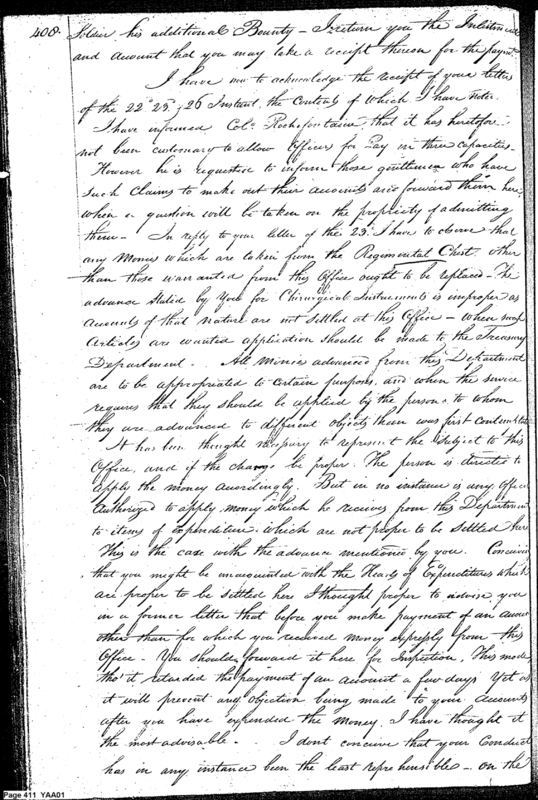 408.
Soldier his additional Bounty - I return you the Inlistment
and account that you may take a receipt thereon for the paymt
I have now to acknowledge the receipt of your letters
of the 22d 23d & 26 Instant, the Contents of which I have noted.
I have informed Colo. Rochefontaine, that it has heretofore
not been customary to allow Officers for Pay in three capacities.
However he is requested to inform those gentlemen who have
such Claims to make out their accounts and forward them here
when a question will be taken on the propriety of admitting
them - In reply to your letter of the 23d. I have to observe that
any Monies which are taken from the Regimental Chest other
than those warranted from this Office ought to be replaced - The
advance stated by you for Chirurgical Instruments is improper as
accounts of that nature are not settled at this Office - when such
Articles are wanted application should be made to the Treasury
Department. All Monies advanced from this Department
are to be appropriated to certain purposes, and when the service
requires that they should be applied by the persons to whom
they are advanced to different objects than was first contemplated
It has been thought necessary to represent the subject to this
Office, and if the change be proper. The person is directed to
apply the money accordingly. But in no instance is any Officer
Authorized to apply money which he receives from this Department
to items of expenditure which are not proper to be settled here
This is the case with the advance mentioned by you. Conceiving
that you might be unacquainted with the Heads of Expenditures which
are proper to be settled here I thought proper to advise you
in a former letter that before you make payment of an account
other than for which you received money expressly from this
Office - You should forward it here for Inspection, This mode
tho' it retarded the payment of an account a few days Yet as
it will prevent any objection being made to your accounts
after you have expended the Money I have thought it
the most advisable. - I dont conceive that your Conduct
has in any instance been the least reprehensible - on the
Page 411 YAA01